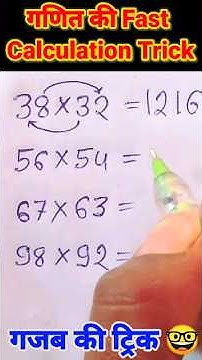 गणित की Fast
Calculation Trick
38×32 =1216
56×54 =
67×63 =
98×92 =
गजब की ट्रिक 🤓